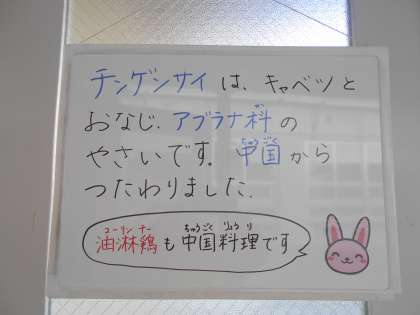 チンゲンサイは、キャベツと
おなじ、アブラナ科の
やさいです。中国から
つたわりました。
油淋鶏も中国料理です